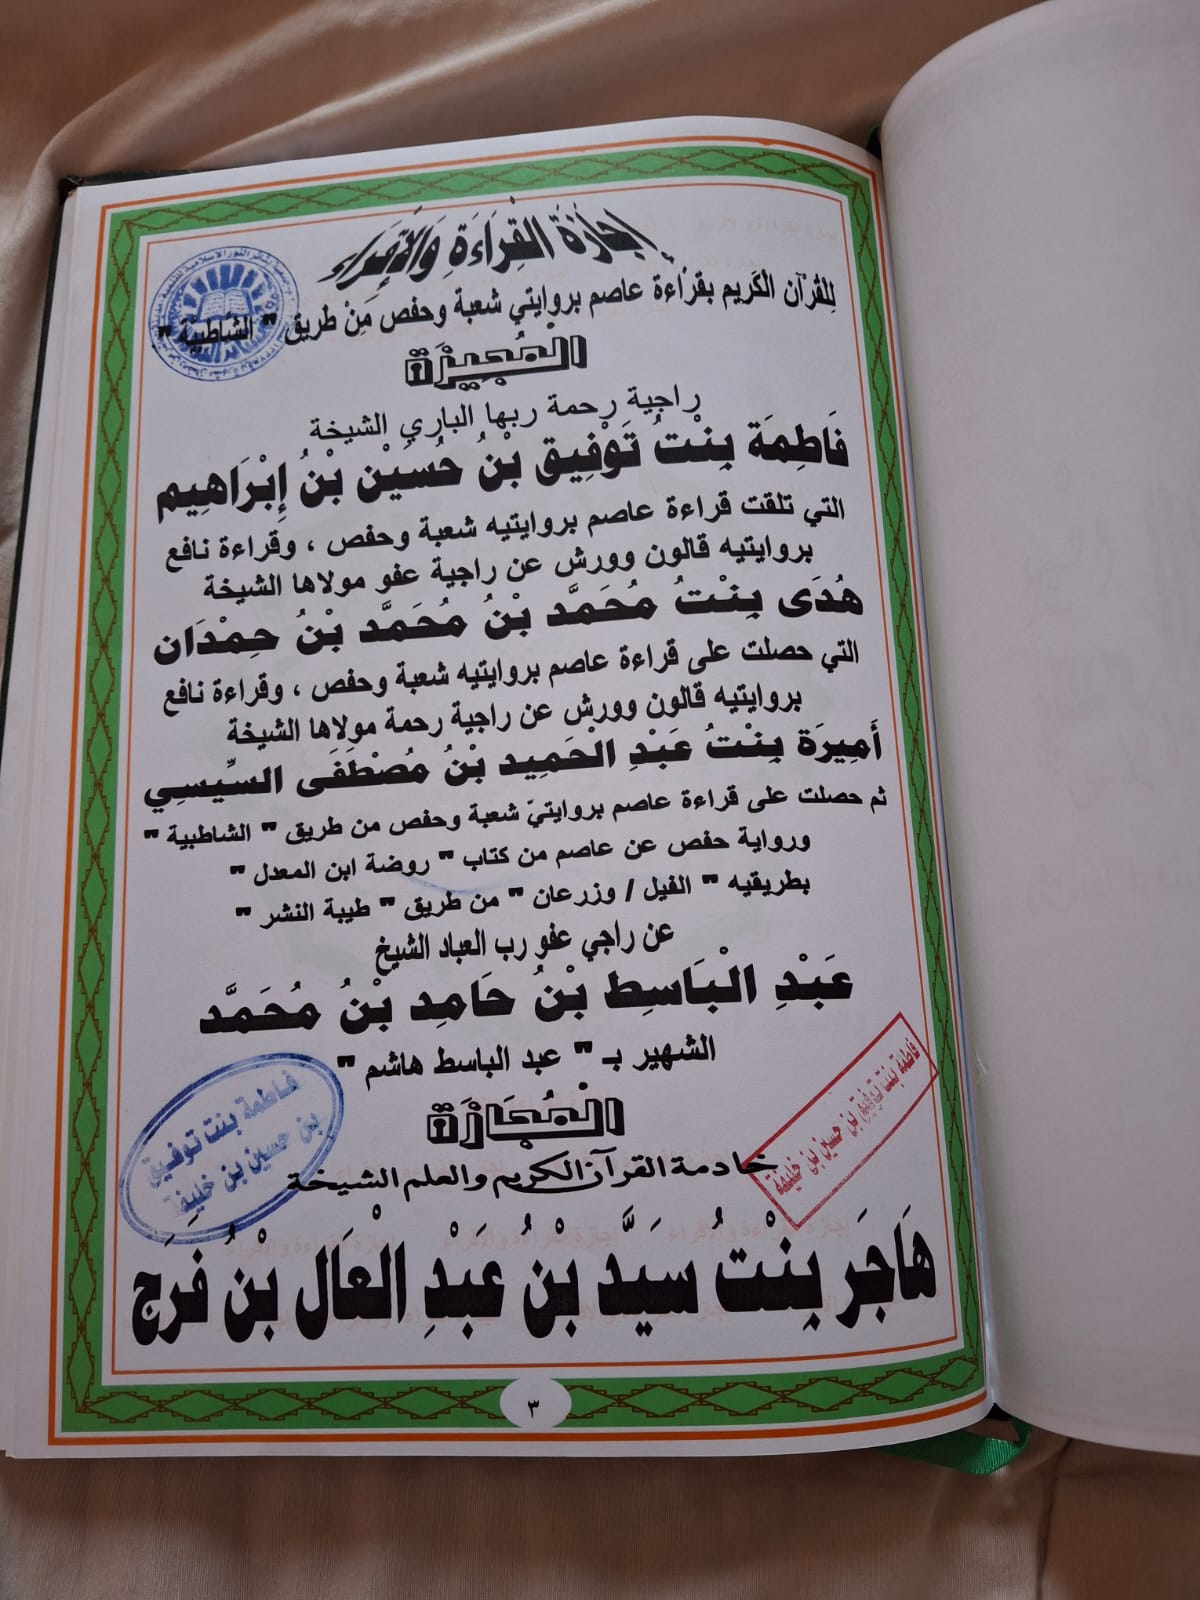 إِجَازَةُ الْقِرَاءَةِ وَالْإِقْرَاءِ
لِلْقُرْآنِ الْكَرِيمِ بقراءة عاصم بروايتي شعبة وحفص مِنْ طريق " الشاطبية "
الْمُجِيزَةُ
راجية رحمة ربها الباري الشيخة
فَاطِمَة بِنْتُ تَوْفِيق بْنُ حُسَيْن بْنُ إِبْرَاهِيم
التي تلقت قراءة عاصم بروايتيه شعبة وحفص ، وقراءة نافع
بروايتيه قالون وورش عن راجية عفو مولاها الشيخة
هُدَى بِنْتُ مُحَمَّد بْنُ مُحَمَّد بْنُ حِمْدَان
التي حصلت على قراءة عاصم بروايتيه شعبة وحفص ، وقراءة نافع
بروايتيه قالون وورش عن راجية رحمة مولاها الشيخة
أَمِيرَة بِنْتُ عَبْدِ الْحَمِيد بْنُ مُصْطَفَى السِّيسِي
ثم حصلت على قراءة عاصم بروايتيّ شعبة وحفص من طريق " الشاطبية "
ورواية حفص عن عاصم من كتاب " روضة ابن المعدل "
بطريقيه " الفيل / وزرعان " من طريق " طيبة النشر "
عن راجي عفو رب العباد الشيخ
عَبْدِ الْبَاسِط بْنُ حَامِد بْنُ مُحَمَّد
الشهير بـ " عبد الباسط هاشم "
الْمُجَازَةُ
فاطمة بنت توفيق
بن حسين بن خليفة
فاطمة بنت توفيق بن حسين بن خليفة
خادمة القرآن الكريم والعلم الشيخة
هَاجَر بِنْتُ سَيَّد بْنُ عَبْدِ الْعَال بْنُ فَرَج
٣